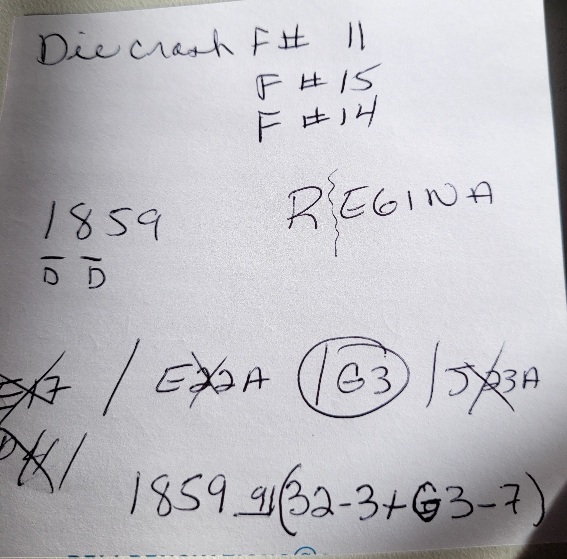 Die crash F# 11
F #15
F #14
1859
D D
R EGINA
E17 / E22A / G3 / J23A
1859 91(32-3+G3-7)